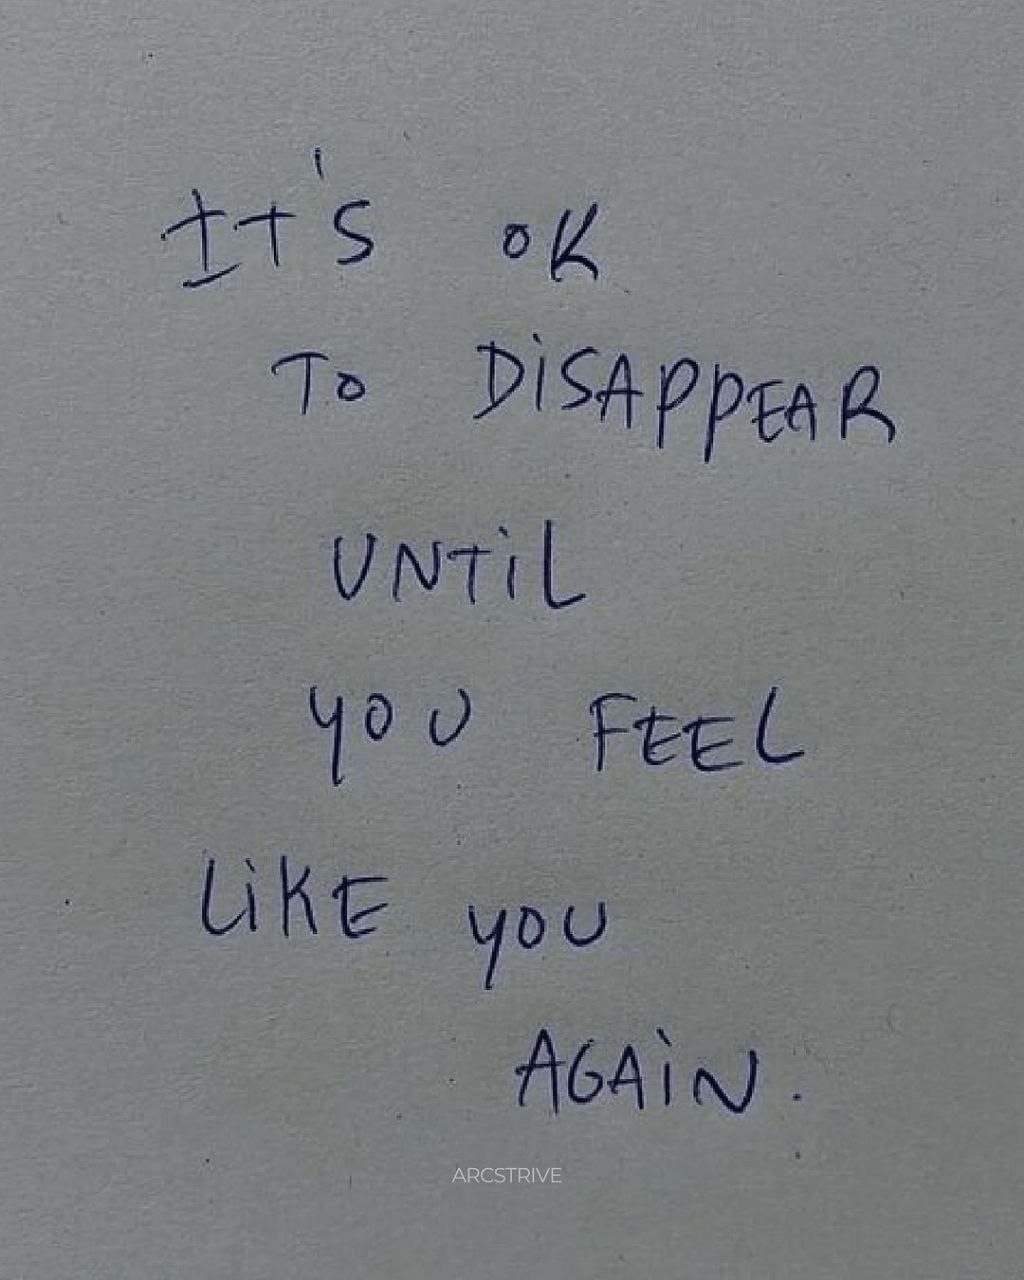 It's OK
To DiSAPPEAR
UNTiL
YOU FEEL
LiKE YOU
AGAiN.
ARCSTRIVE